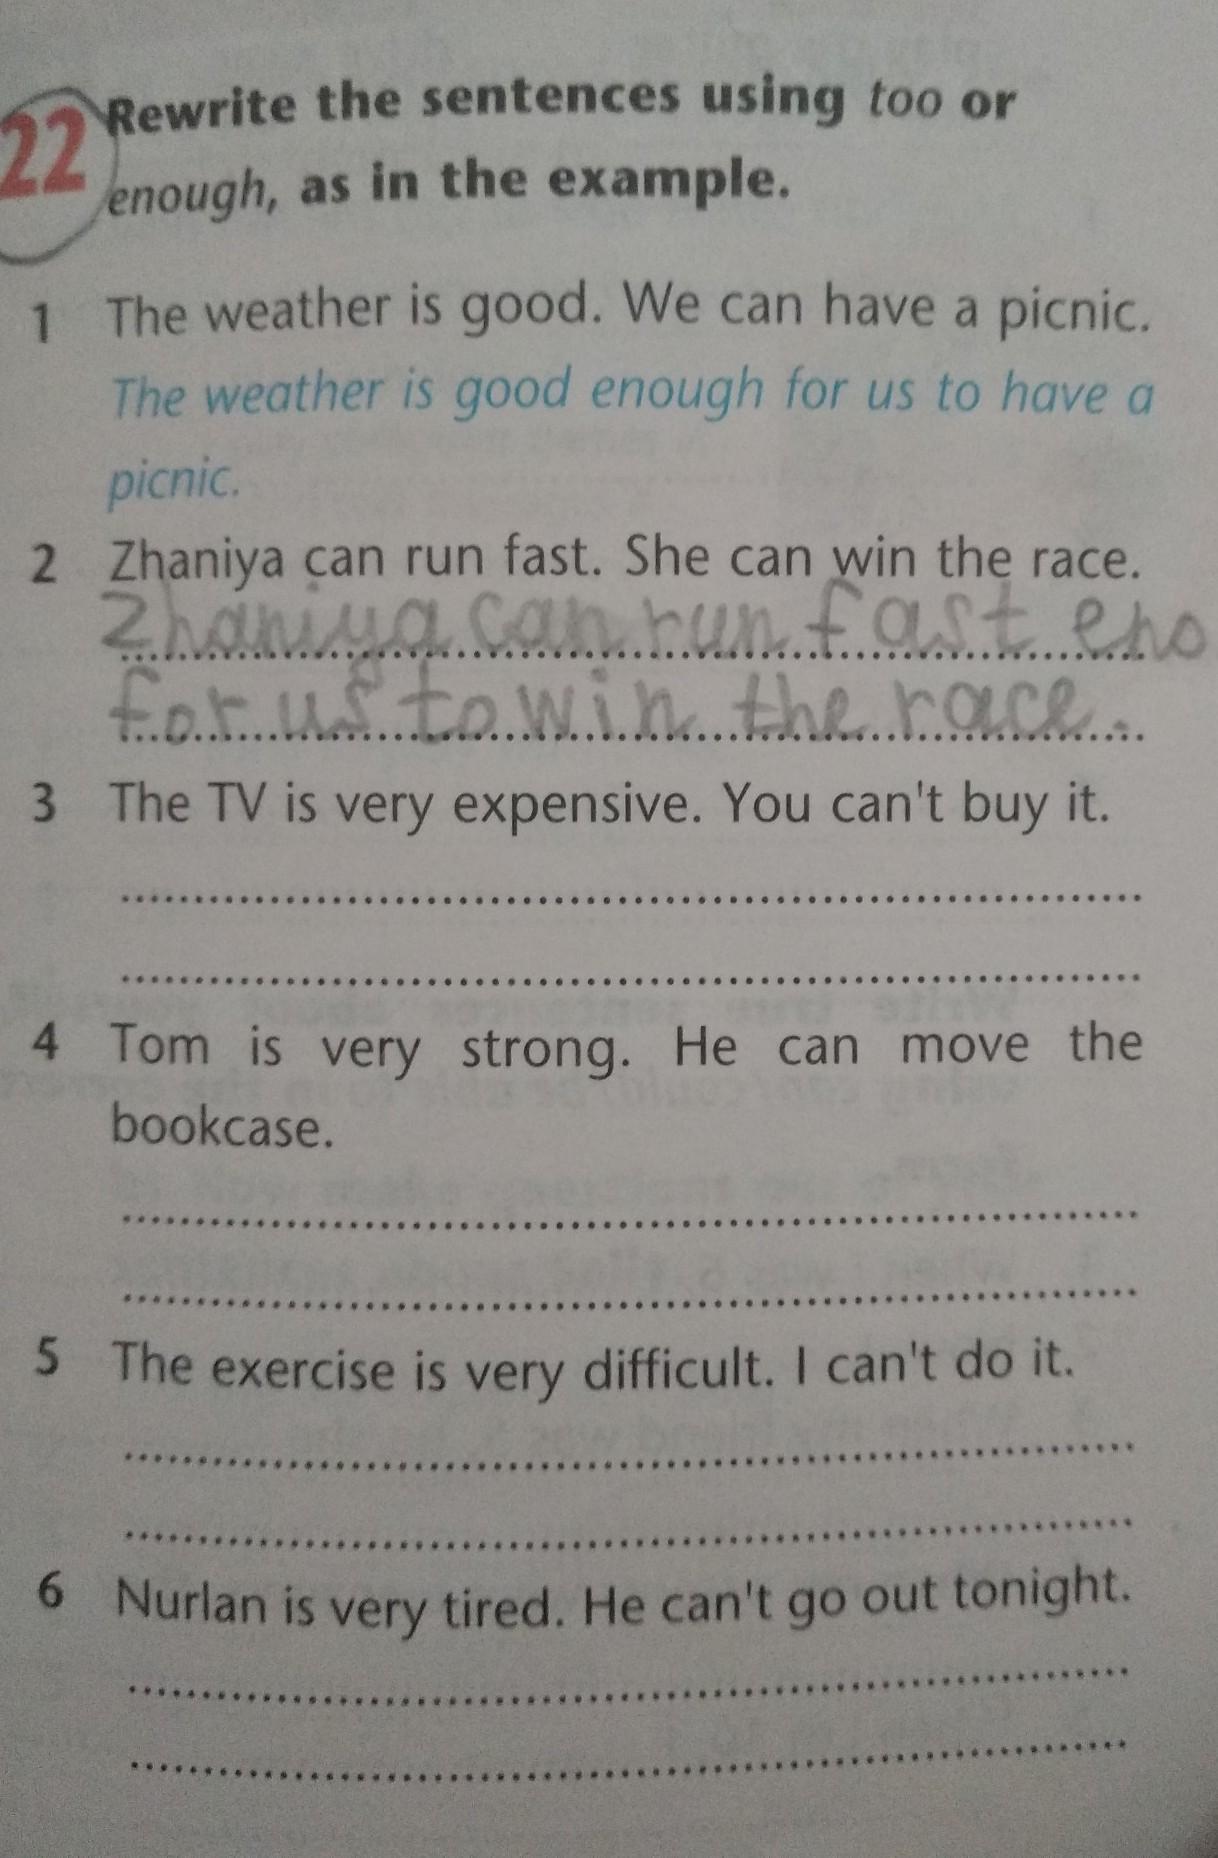 22 Rewrite the sentences using too or
enough, as in the example.
1 The weather is good. We can have a picnic.
The weather is good enough for us to have a
picnic.
2 Zhaniya can run fast. She can win the race.
Zhaniya can run fast eno
for us to win the race.
3 The TV is very expensive. You can't buy it.
4 Tom is very strong. He can move the
bookcase.
5 The exercise is very difficult. I can't do it.
6 Nurlan is very tired. He can't go out tonight.